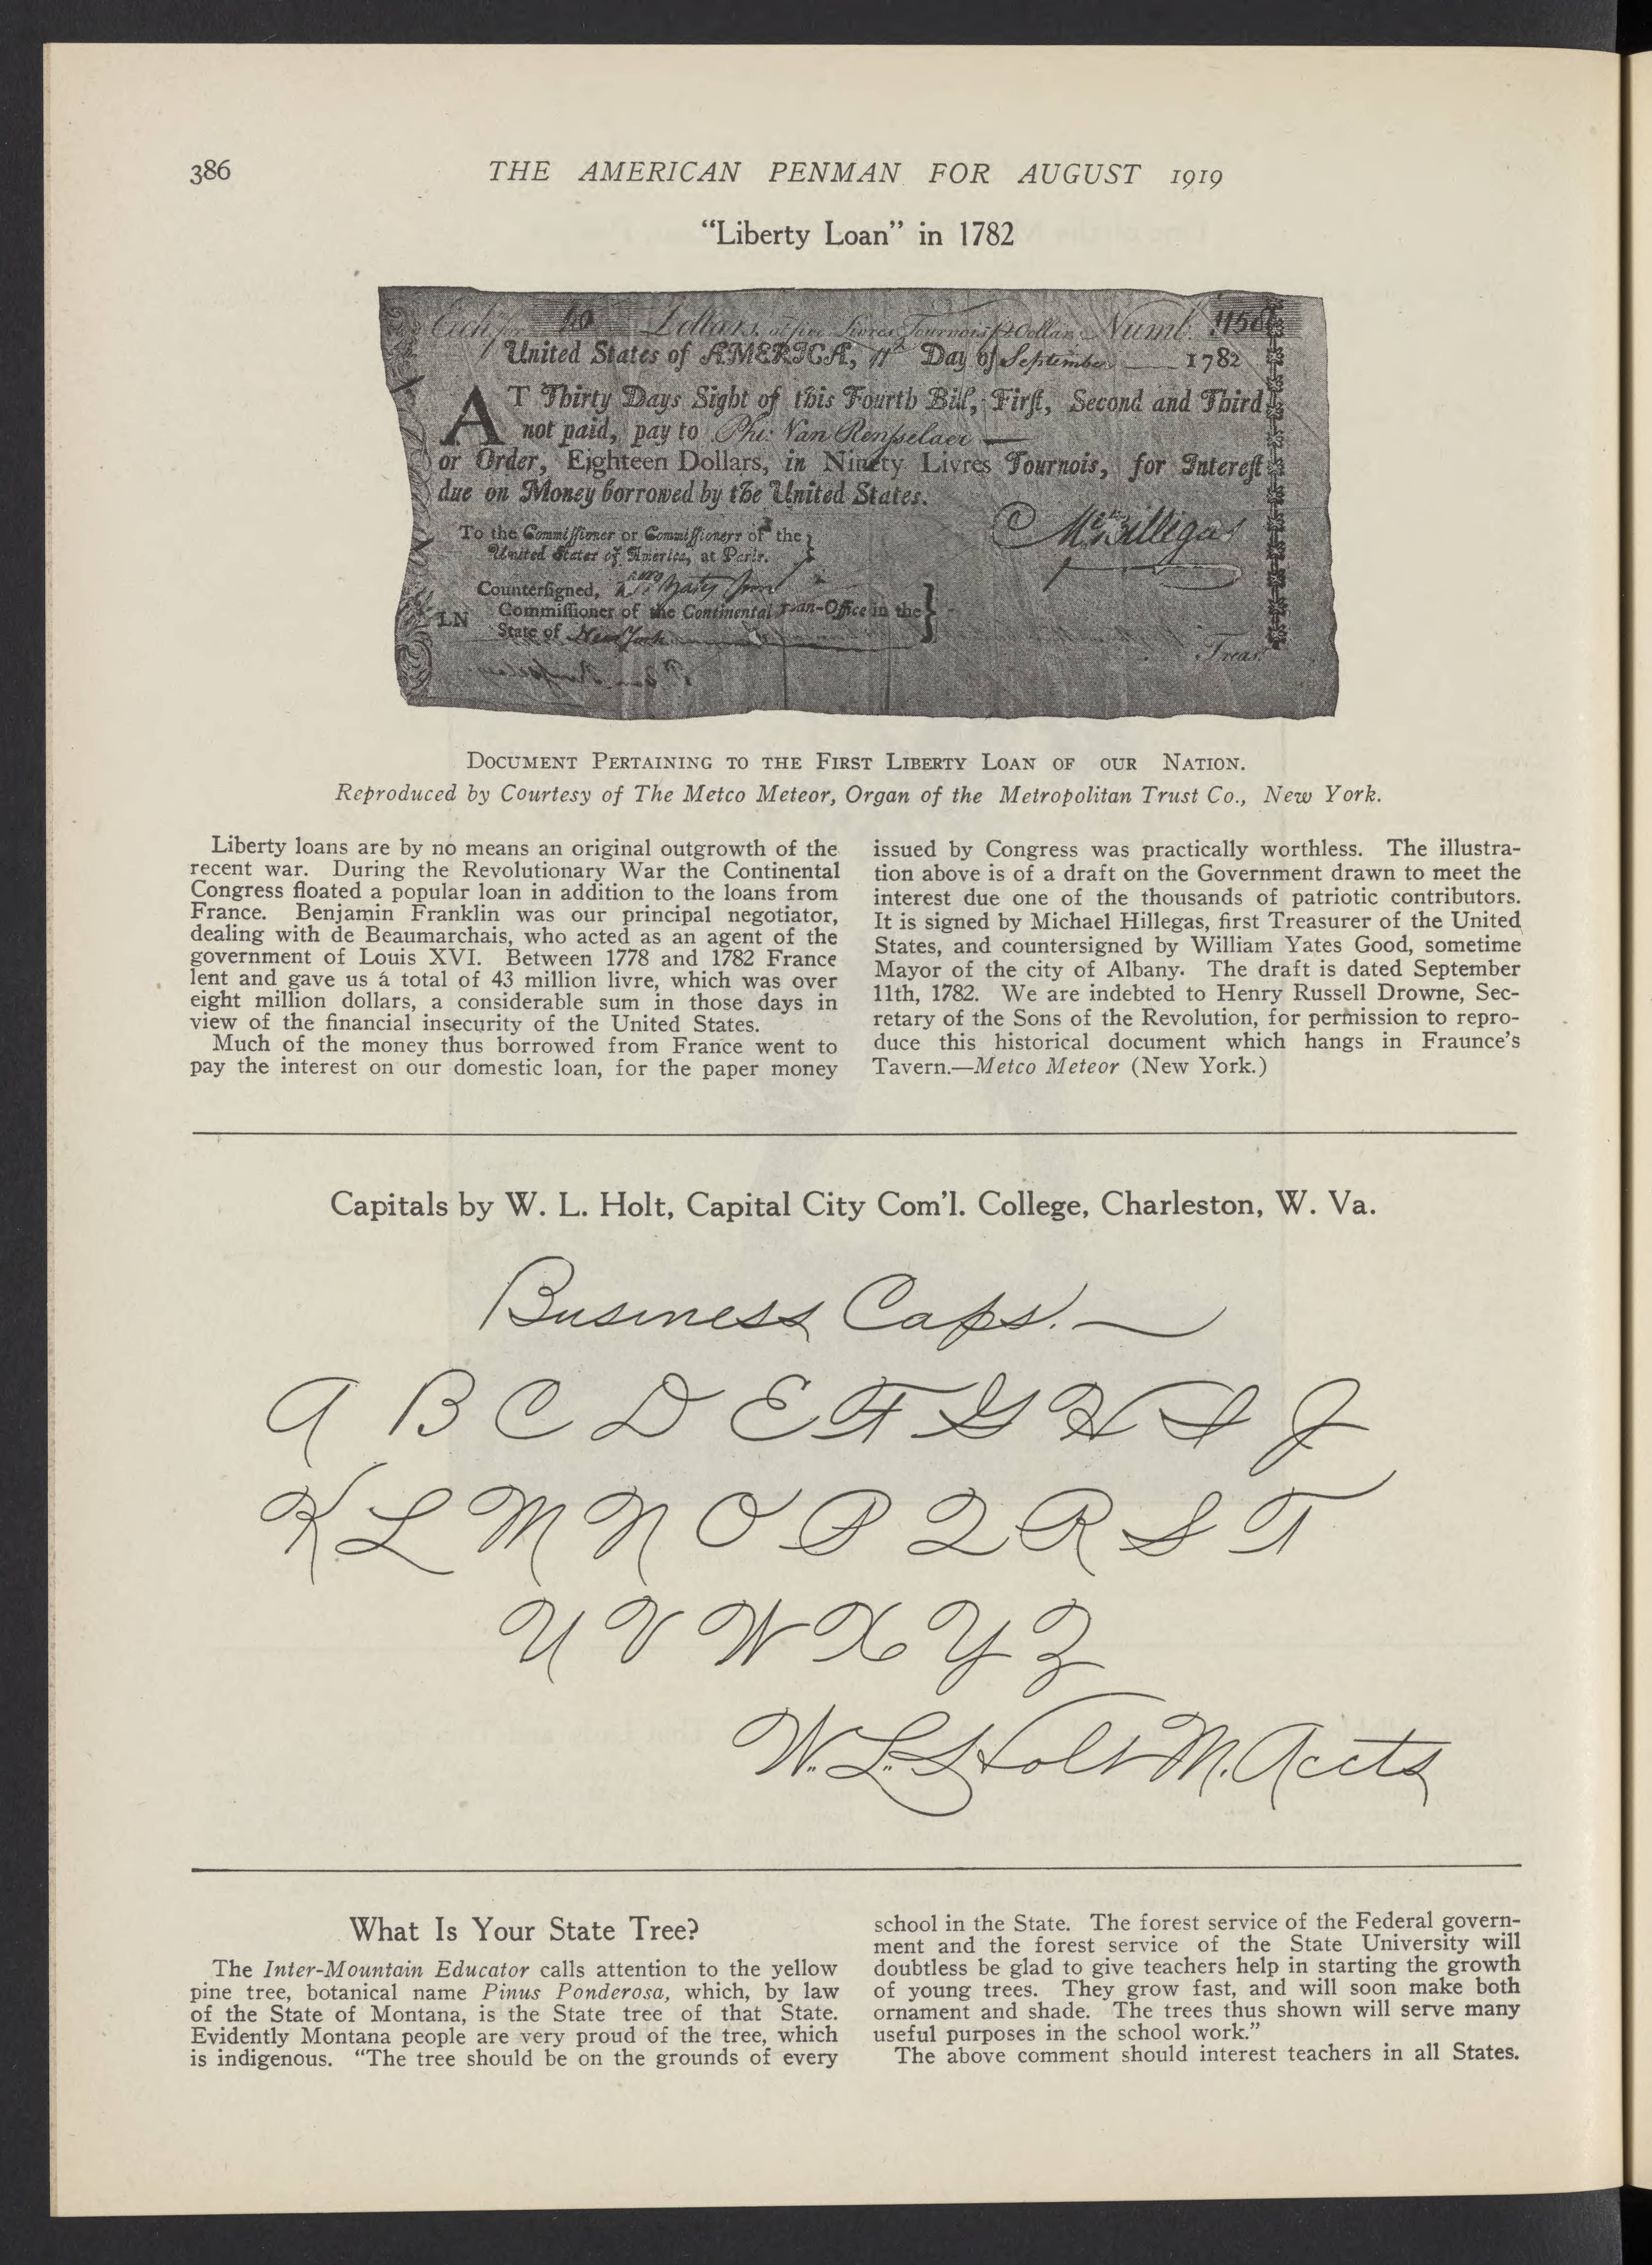 386
THE AMERICAN PENMAN FOR AUGUST 1919
“Liberty Loan” in 1782
Dollars, at five Livres Tournois p. Dollar. Numb.
United States of AMERICA, 11th Day of September 1782
AT Thirty Days Sight of this Fourth Bill, Firſt, Second and Third
not paid, pay to Phi: Van Renſselaer
or Order, Eighteen Dollars, in Ninety Livres Tournois, for Intereſt
due on Money borrowed by the United States.
To the Commiſſioner or Commiſſioners of the
United States of America, at Paris.
Counterſigned,
Commiſſioner of the Continental Loan-Office in the
State of New York
LN
M Hillegas
Treas.
DOCUMENT PERTAINING TO THE FIRST LIBERTY LOAN OF OUR NATION.
Reproduced by Courtesy of The Metco Meteor, Organ of the Metropolitan Trust Co., New York.
Liberty loans are by no means an original outgrowth of the
recent war. During the Revolutionary War the Continental
Congress floated a popular loan in addition to the loans from
France. Benjamin Franklin was our principal negotiator,
dealing with de Beaumarchais, who acted as an agent of the
government of Louis XVI. Between 1778 and 1782 France
lent and gave us á total of 43 million livre, which was over
eight million dollars, a considerable sum in those days in
view of the financial insecurity of the United States.
Much of the money thus borrowed from France went to
pay the interest on our domestic loan, for the paper money
issued by Congress was practically worthless. The illustra-
tion above is of a draft on the Government drawn to meet the
interest due one of the thousands of patriotic contributors.
It is signed by Michael Hillegas, first Treasurer of the United
States, and countersigned by William Yates Good, sometime
Mayor of the city of Albany. The draft is dated September
11th, 1782. We are indebted to Henry Russell Drowne, Sec-
retary of the Sons of the Revolution, for permission to repro-
duce this historical document which hangs in Fraunce's
Tavern.—Metco Meteor (New York.)
Capitals by W. L. Holt, Capital City Com'l. College, Charleston, W. Va.
Business Caps.
A B C D E F G H I J
K L M N O P Q R S T
U V W X Y Z
W. L. Holt M. Accts
What Is Your State Tree?
The Inter-Mountain Educator calls attention to the yellow
pine tree, botanical name Pinus Ponderosa, which, by law
of the State of Montana, is the State tree of that State.
Evidently Montana people are very proud of the tree, which
is indigenous. “The tree should be on the grounds of every
school in the State. The forest service of the Federal govern-
ment and the forest service of the State University will
doubtless be glad to give teachers help in starting the growth
of young trees. They grow fast, and will soon make both
ornament and shade. The trees thus shown will serve many
useful purposes in the school work.”
The above comment should interest teachers in all States.